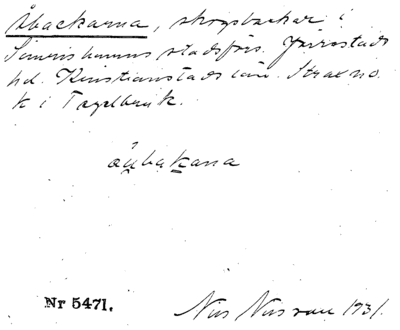 Åbackarna, skogsbackar i
Simrishamns stadsförs. Järrestads
hd. Kristianstads län. Strax no
k i Tegelbruk.
åu̯bakana
Nr 5471.
Nils Nilsson 1931.